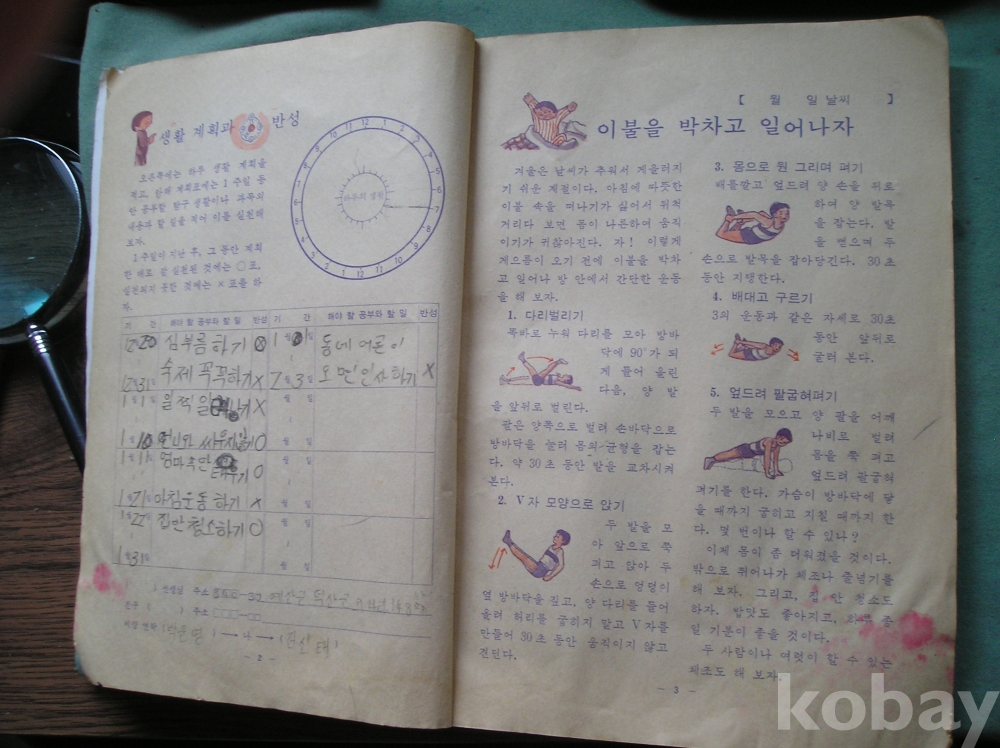 생활 계획과
반성
오른쪽에는 하루 생활 계획을
적고, 아래 계획표에는 1 주일 동
안 공부할 탐구 생활이나 과목의
내용과 할 일을 적어 이를 실천해
보자.
1 주일이 지난 후, 그 동안 계획
한 대로 잘 실천된 것에는 ○표,
실천되지 못한 것에는 ×표를 하
자.
하루의 생활
12 1 2 3 4 5 6 7 8 9 10 11 12 1 2 3 4 5 6 7 8 9 10 11
기 간 해야 할 공부와 할 일 반성 기 간 해야 할 공부와 할 일 반성
12 20 심부름 하기 ⊗ 1 월 일 동네 어른이
12 31 숙제 꼭꼭하기 × 2 월 3 일 오면 인사 하기 ×
1 1 일찍 × 월 일
1 10 언니와 ○ 월 일
1 11 엄마 ○ 월 일
1 21 아침운동 하기 × 월 일
1 22 집안 청소하기 ○ 월 일
1 31 월 일
선생님 주소
친구 ( ) 주소
- 2 -
【 월 일 날씨 】
이불을 박차고 일어나자
겨울은 날씨가 추워서 게을러지
기 쉬운 계절이다. 아침에 따뜻한
이불 속을 떠나기가 싫어서 뒤척
거리다 보면 몸이 나른하여 움직
이기가 귀찮아진다. 자! 이렇게
게으름이 오기 전에 이불을 박차
고 일어나 방 안에서 간단한 운동
을 해 보자.
1. 다리벌리기
똑바로 누워 다리를 모아 방바
닥에 90°가 되
게 들어 올린
다음, 양 발
을 앞뒤로 벌린다.
팔은 양쪽으로 벌려 손바닥으로
방바닥을 눌러 몸의 균형을 잡는
다. 약 30초 동안 발을 교차시켜
본다.
2. V자 모양으로 앉기
두 발을 모
아 앞으로 쭉
펴고 앉아 두
손으로 엉덩이
옆 방바닥을 짚고, 양 다리를 들어
올려 허리를 굽히지 말고 V자를
만들어 30초 동안 움직이지 않고
견딘다.
3. 몸으로 원 그리며 펴기
배를깔고 엎드려 양 손을 뒤로
하여 양 발목
을 잡는다. 발
을 뻗으며 두
손으로 발목을 잡아당긴다. 30초
동안 지탱한다.
4. 배대고 구르기
3의 운동과 같은 자세로 30초
동안 앞뒤로
굴러 본다.
5. 엎드려 팔굽혀펴기
두 발을 모으고 양 팔을 어깨
나비로 벌려
몸을 쭉 펴고
엎드려 팔굽혀
펴기를 한다. 가슴이 방바닥에 닿
을 때까지 굽히고 지칠 때까지 한
다. 몇 번이나 할 수 있나?
이제 몸이 좀 더워졌을 것이다.
밖으로 뛰어나가 체조나 줄넘기를
해 보자. 그리고, 집 안 청소도
하자. 밥맛도 좋아지고, 하루 종
일 기분이 좋을 것이다.
두 사람이나 여럿이 할 수 있는
체조도 해 보자.
- 3 -
kobay